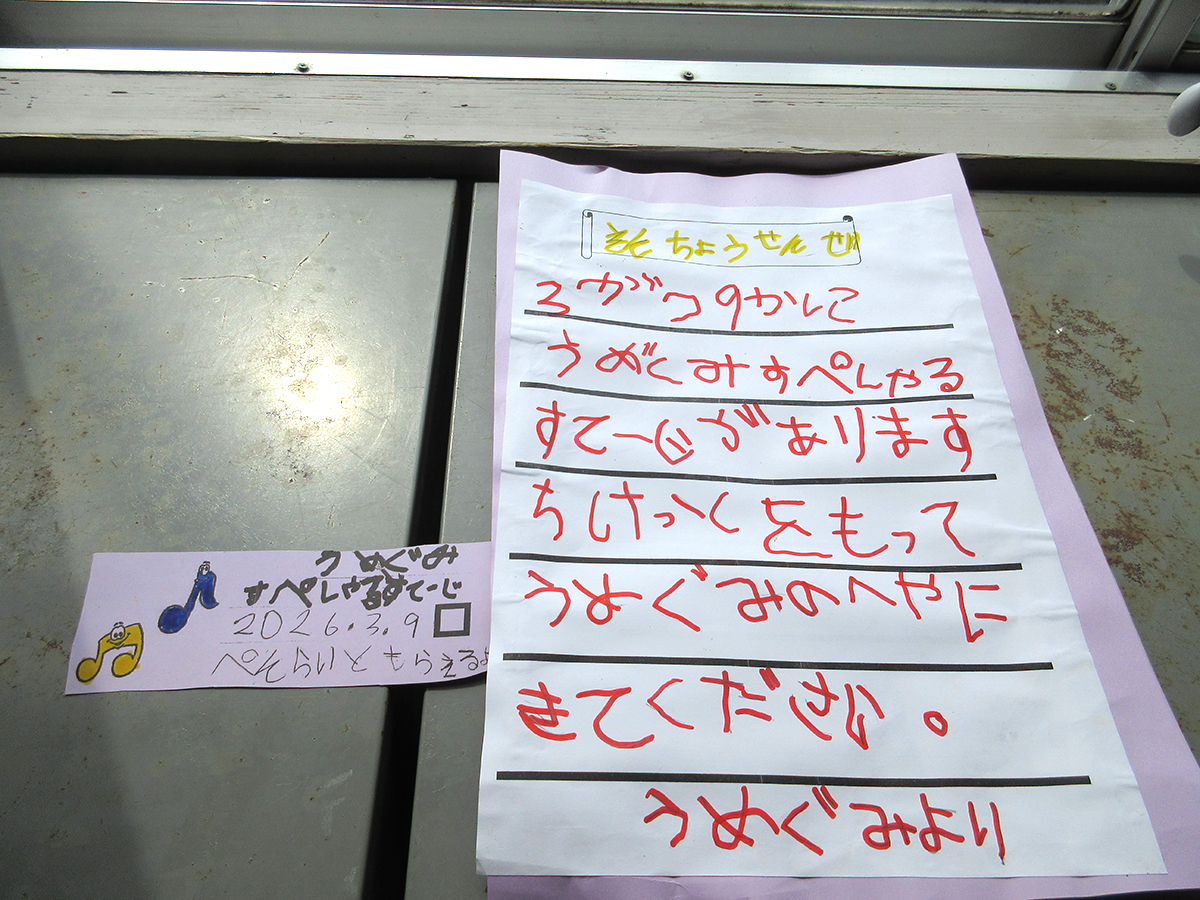 えんちょうせんせい
3がつ9かに
うめぐみすぺしゃる
すてーじがあります
ちけっとをもって
うめぐみのへやに
きてください。
うめぐみより
うめぐみ
すぺしゃるすてーじ
2026.3.9
もらえるよ